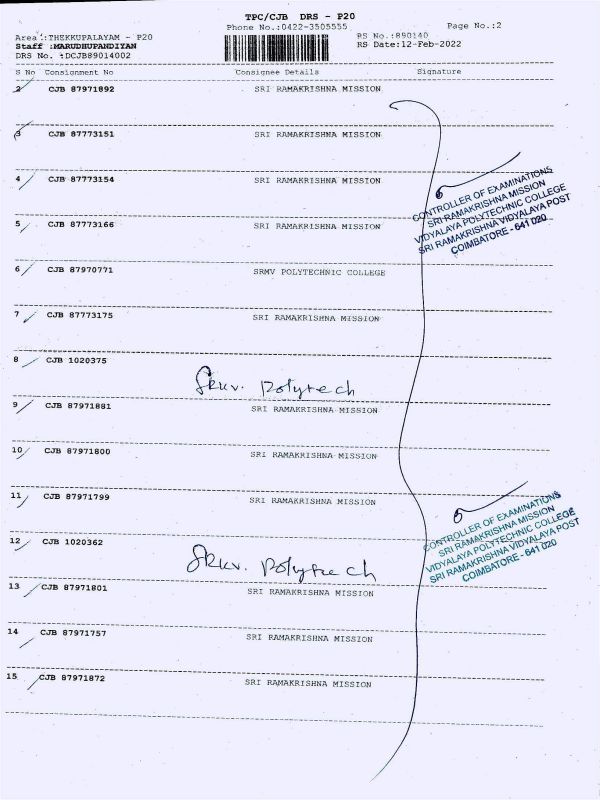 TPC/CJB DRS - P20
Phone No.:0422-3505555
Page No.:2
Area :THEKKUPALAYAM - P20
RS No.:890140
Staff :MARUDHUPANDIYAN
RS Date:12-Feb-2022
DRS No. :DCJB89014002
S No Consignment No Consignee Details Signature
2 CJB 87971892 SRI RAMAKRISHNA MISSION
3 CJB 87773151 SRI RAMAKRISHNA MISSION
4 CJB 87773154 SRI RAMAKRISHNA MISSION
5 CJB 87773166 SRI RAMAKRISHNA MISSION
CONTROLLER OF EXAMINATIONS
SRI RAMAKRISHNA MISSION
VIDYALAYA POLYTECHNIC COLLEGE
SRI RAMAKRISHNA VIDYALAYA POST
COIMBATORE - 641 020
6 CJB 87970771 SRMV POLYTECHNIC COLLEGE
7 CJB 87773175 SRI RAMAKRISHNA MISSION
8 CJB 1020375
Polytech
9 CJB 87971881 SRI RAMAKRISHNA MISSION
10 CJB 87971800 SRI RAMAKRISHNA MISSION
11 CJB 87971799 SRI RAMAKRISHNA MISSION
CONTROLLER OF EXAMINATIONS
SRI RAMAKRISHNA MISSION
VIDYALAYA POLYTECHNIC COLLEGE
SRI RAMAKRISHNA VIDYALAYA POST
COIMBATORE - 641 020
12 CJB 1020362
Polytech
13 CJB 87971801 SRI RAMAKRISHNA MISSION
14 CJB 87971757 SRI RAMAKRISHNA MISSION
15 CJB 87971872 SRI RAMAKRISHNA MISSION